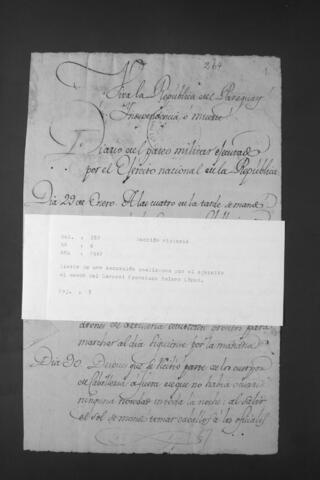 264
Viva la República del Paraguay
Independencia ó muerte
Diario del paseo militar ejecutado
por el Ejército nacional de la República
Dia 29 de Enero. A las cuatro de la tarde se mandó
Sección Historia
Nº : 6
Diario de una excursión realizada por el ejército
al mando del General Francisco Solano López.
Pag. : 5
marchar al dia siguiente por la mañana
Dia 30. Despues que se recibió parte de los cuerpos
de Caballeria de que no habia
ninguna novedad en toda la noche: al salir
el sol se mandó tomar caballos á los oficiales